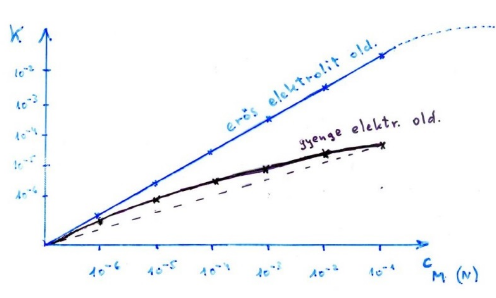 K
10⁻²
10⁻³
10⁻⁴
10⁻⁵
10⁻⁶
erős elektrolit old.
gyenge elektr. old.
10⁻⁶ 10⁻⁵ 10⁻⁴ 10⁻³ 10⁻² 10⁻¹
c M. (N)